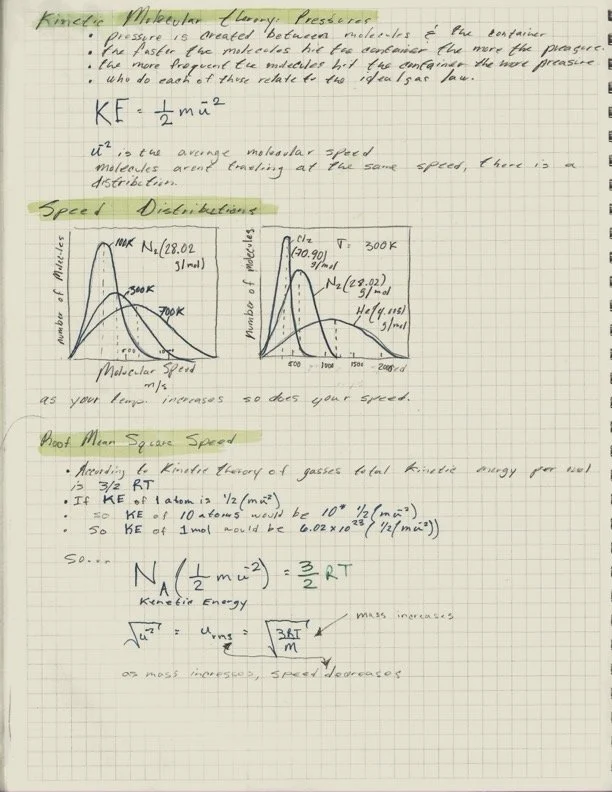 Kinetic Molecular Theory: Pressures
• pressure is created between molecules & the container
• the faster the molecules hit the container the more the preasure.
• the more frequent the molecules hit the container the more preasure
• who do each of those relate to the ideal gas law.
KE = 1/2 m ū²
ū² is the average molecular speed
molecules arent traveling at the same speed, there is a
distribution.
Speed Distributions
number of Molecules
100K
N₂ (28.02 g/mol)
300K
700K
500
1000
Molecular Speed
m/s
number of molecules
Cl₂ (70.90) g/mol
T = 300K
N₂ (28.02) g/mol
500
1000
1500
2000
as your temp. increases so does your speed.
Root Mean Square Speed
• According to Kinetic theory of gasses total kinetic energy per mol
is 3/2 RT
• If KE of 1 atom is 1/2(mū²)
• so KE of 10 atoms would be 1/2(mū²)
• So KE of 1mol would be 6.02x10²³(1/2(mū²))
So....
N_A (1/2 mū²) = 3/2 RT
Kinetic Energy
√ū² = u_rms = √(3RT/M)
mass increases
as mass increases, speed decreases